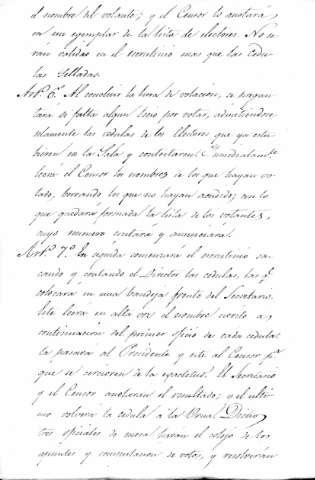 el nombre del votante; y el Censor lo anotará,
en un ejemplar de la lista de electores. No se
rán validas en el escrutinio mas que las cedu
las selladas.
Artº. 6º. Al concluir la hora de votacion, se pregun
tara se falta algun Socio por votar, admitiendose
solamente las cedulas de los Electores que ya estu
bieren en la Sala y contestaren. Inmediatamte.
leerá el Censor los nombres de los que hayan vo
tado, borrando los que no hayan acudido; con lo
que quedará formada la lista de los votantes,
cuyo numero contará y anunciará.
Artº. 7º. En seguida comenzará el escrutinio sa
cando y contando el Director las cedulas, las q.
colocará en una bandeja frente del Secretario.
Este leera en alta voz el nombre escrito a
continuacion del primer oficio de cada cedula
la pasara al Presidente y este al Censor pa.
que se cercioren de la exactitud. El Secretario
y el Censor anotaran el resultado; y el ulti
mo volverá la cedula a la Dicho
tres oficiales de mesa haran el cotejo de los
apuntes y computacion de votos, y resolverán